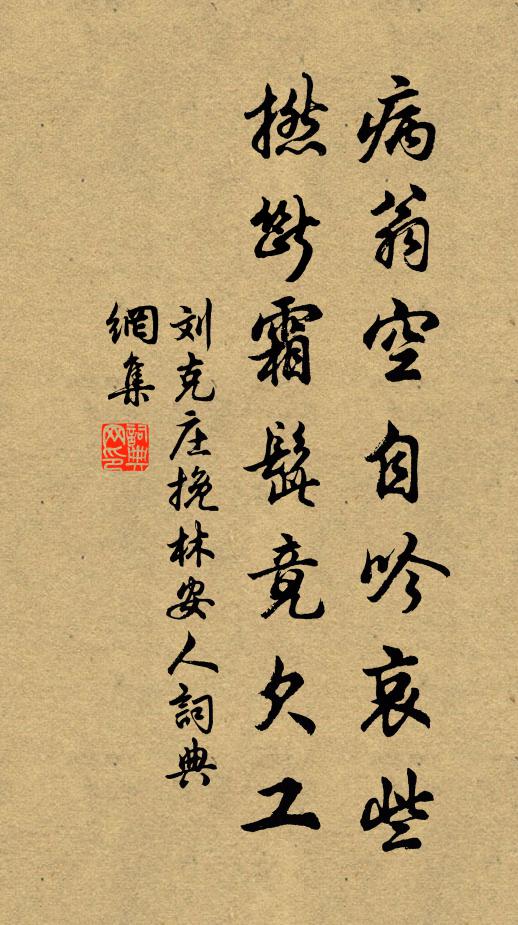 病翁空自吟哀些
撚断霜髭竟欠工
刘克庄挽林安人詞典
網集
詞典网印